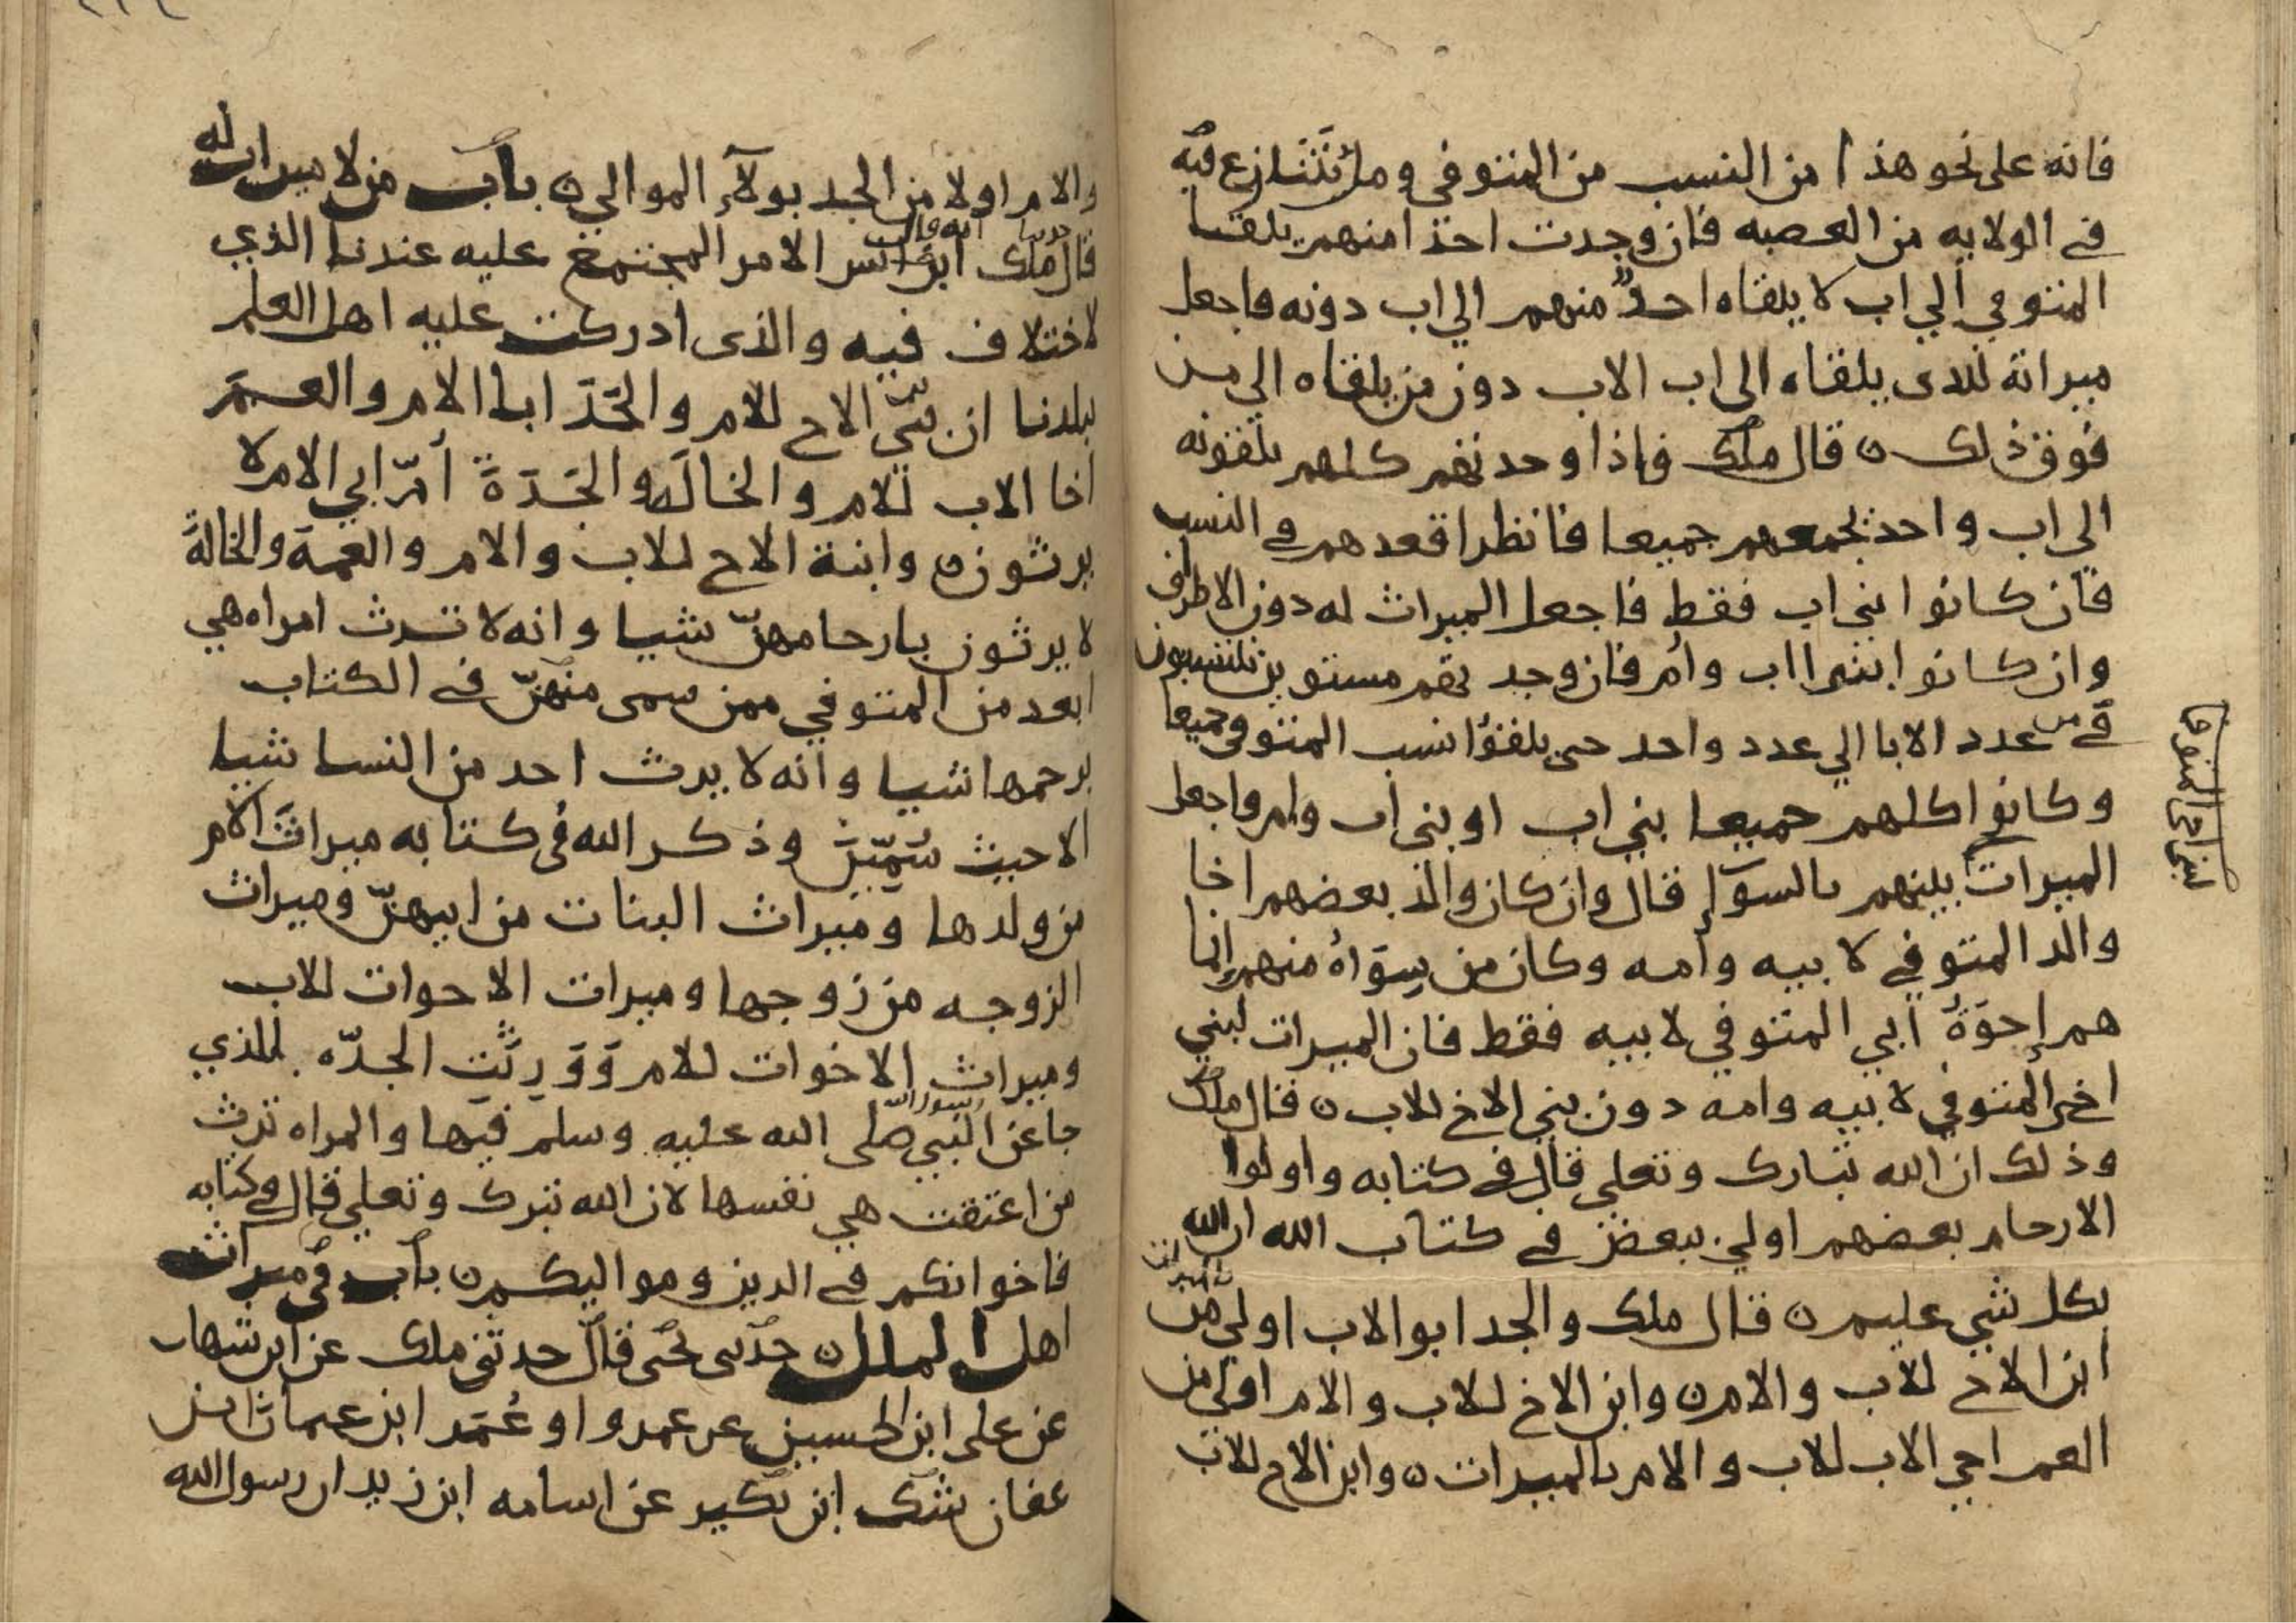 فانه على نحو هذا من النسب من المتوفي ومن تَتنازع فيه
في الولايه من العصبه فان وجدت احدا منهم يلقا
المتوفي الي اب لا يلقاه احدٌ منهم الي اب دونه فاجعل
ميراثه للذى يلقاه الى اب الاب دون من يلقاه الي من
فوق ذلك ه قال ملك فاذا وجدتهم كلهم يلقونه
الي اب واحد يجمعهم جميعا فانظر اقعدهم في النسب
فان كانوا بني اب فقط فاجعل الميراث له دون الاطراف
وان كانوا ابني اب وام فان وجدتهم مستوين ينتسبون
في من عدد الابا الي عدد واحد حتى يلقوا نسب المتوفي جميعا
وكانوا كلهم جميعا بني اب او بني اب وام فاجعل
الميراث بينهم بالسوآء قال وان كان والد بعضهم اخا
والد المتوفي لابيه وأمه وكان من سِوَاهُ منهم إنما
هم إخوَةُ ابي المتوفي لابيه فقط فان الميراث لبني
اخي المتوفي لابيه وامه دون بني الاخ للاب ه قال ملك
وذلك ان الله تبارك وتعلي قال في كتابه واولوا
الارحام بعضهم اولي ببعض في كتاب الله ان الله
بكل شي عليم ه قال ملك والجد ابو الاب اولي من
بالميراث
ابن الاخ للاب والام ه وابن الاخ للاب والام اولي من
العم اخي الاب للاب والام بالميراث ه وابن الاخ للاب
والام اولا من الجد بولآء الموالي ه باب من لا ميراث له
قال ملك ابن انس الامر المجتمع عليه عندنا الذي
انه قال
لاختلاف فيه والذى ادركت عليه اهل العلم
ببلدنا ان بني الاخ للام والجَدّ ابا الام والعمَّ
اخا الاب للام والخالَ والجَدّةَ أمّ ابي الام لا
يرثون ه وابنة الاخ للاب والام والعمة والخالةَ
لا يرثون بارحامهنّ شيا وانه لا ترث امراه هي
ابعد من المتوفي ممن سمى منهنّ في الكتاب
برحمها شيا وانه لا يرث احد من النسا شيا
الا حيث سُمّينَ وذكر الله في كتابه ميراثَ الام
من ولدها وميراث البنات من ابيهنّ وميراث
الزوجه من زوجها وميراث الاخوات للاب
وميراث الاخوات للام وَوَرِثَتِ الجدّه للذي
جا عن النبي صلى الله عليه وسلم فيها والمراه ترث
رسول الله
من اعتقت هي نفسها لان الله تبرك وتعلي قال في كتابه
فاخوانكم في الدين ومواليكم ه باب في ميراث
اهل الملل ه حدثنى يحيى قال حدثني ملك عن ابن شهاب
عن على ابن الحسين عن عمرو او عُمَر ابن عثمان ابن
عفان شك ابن بكير عن اسامه ابن زيد ان رسول الله